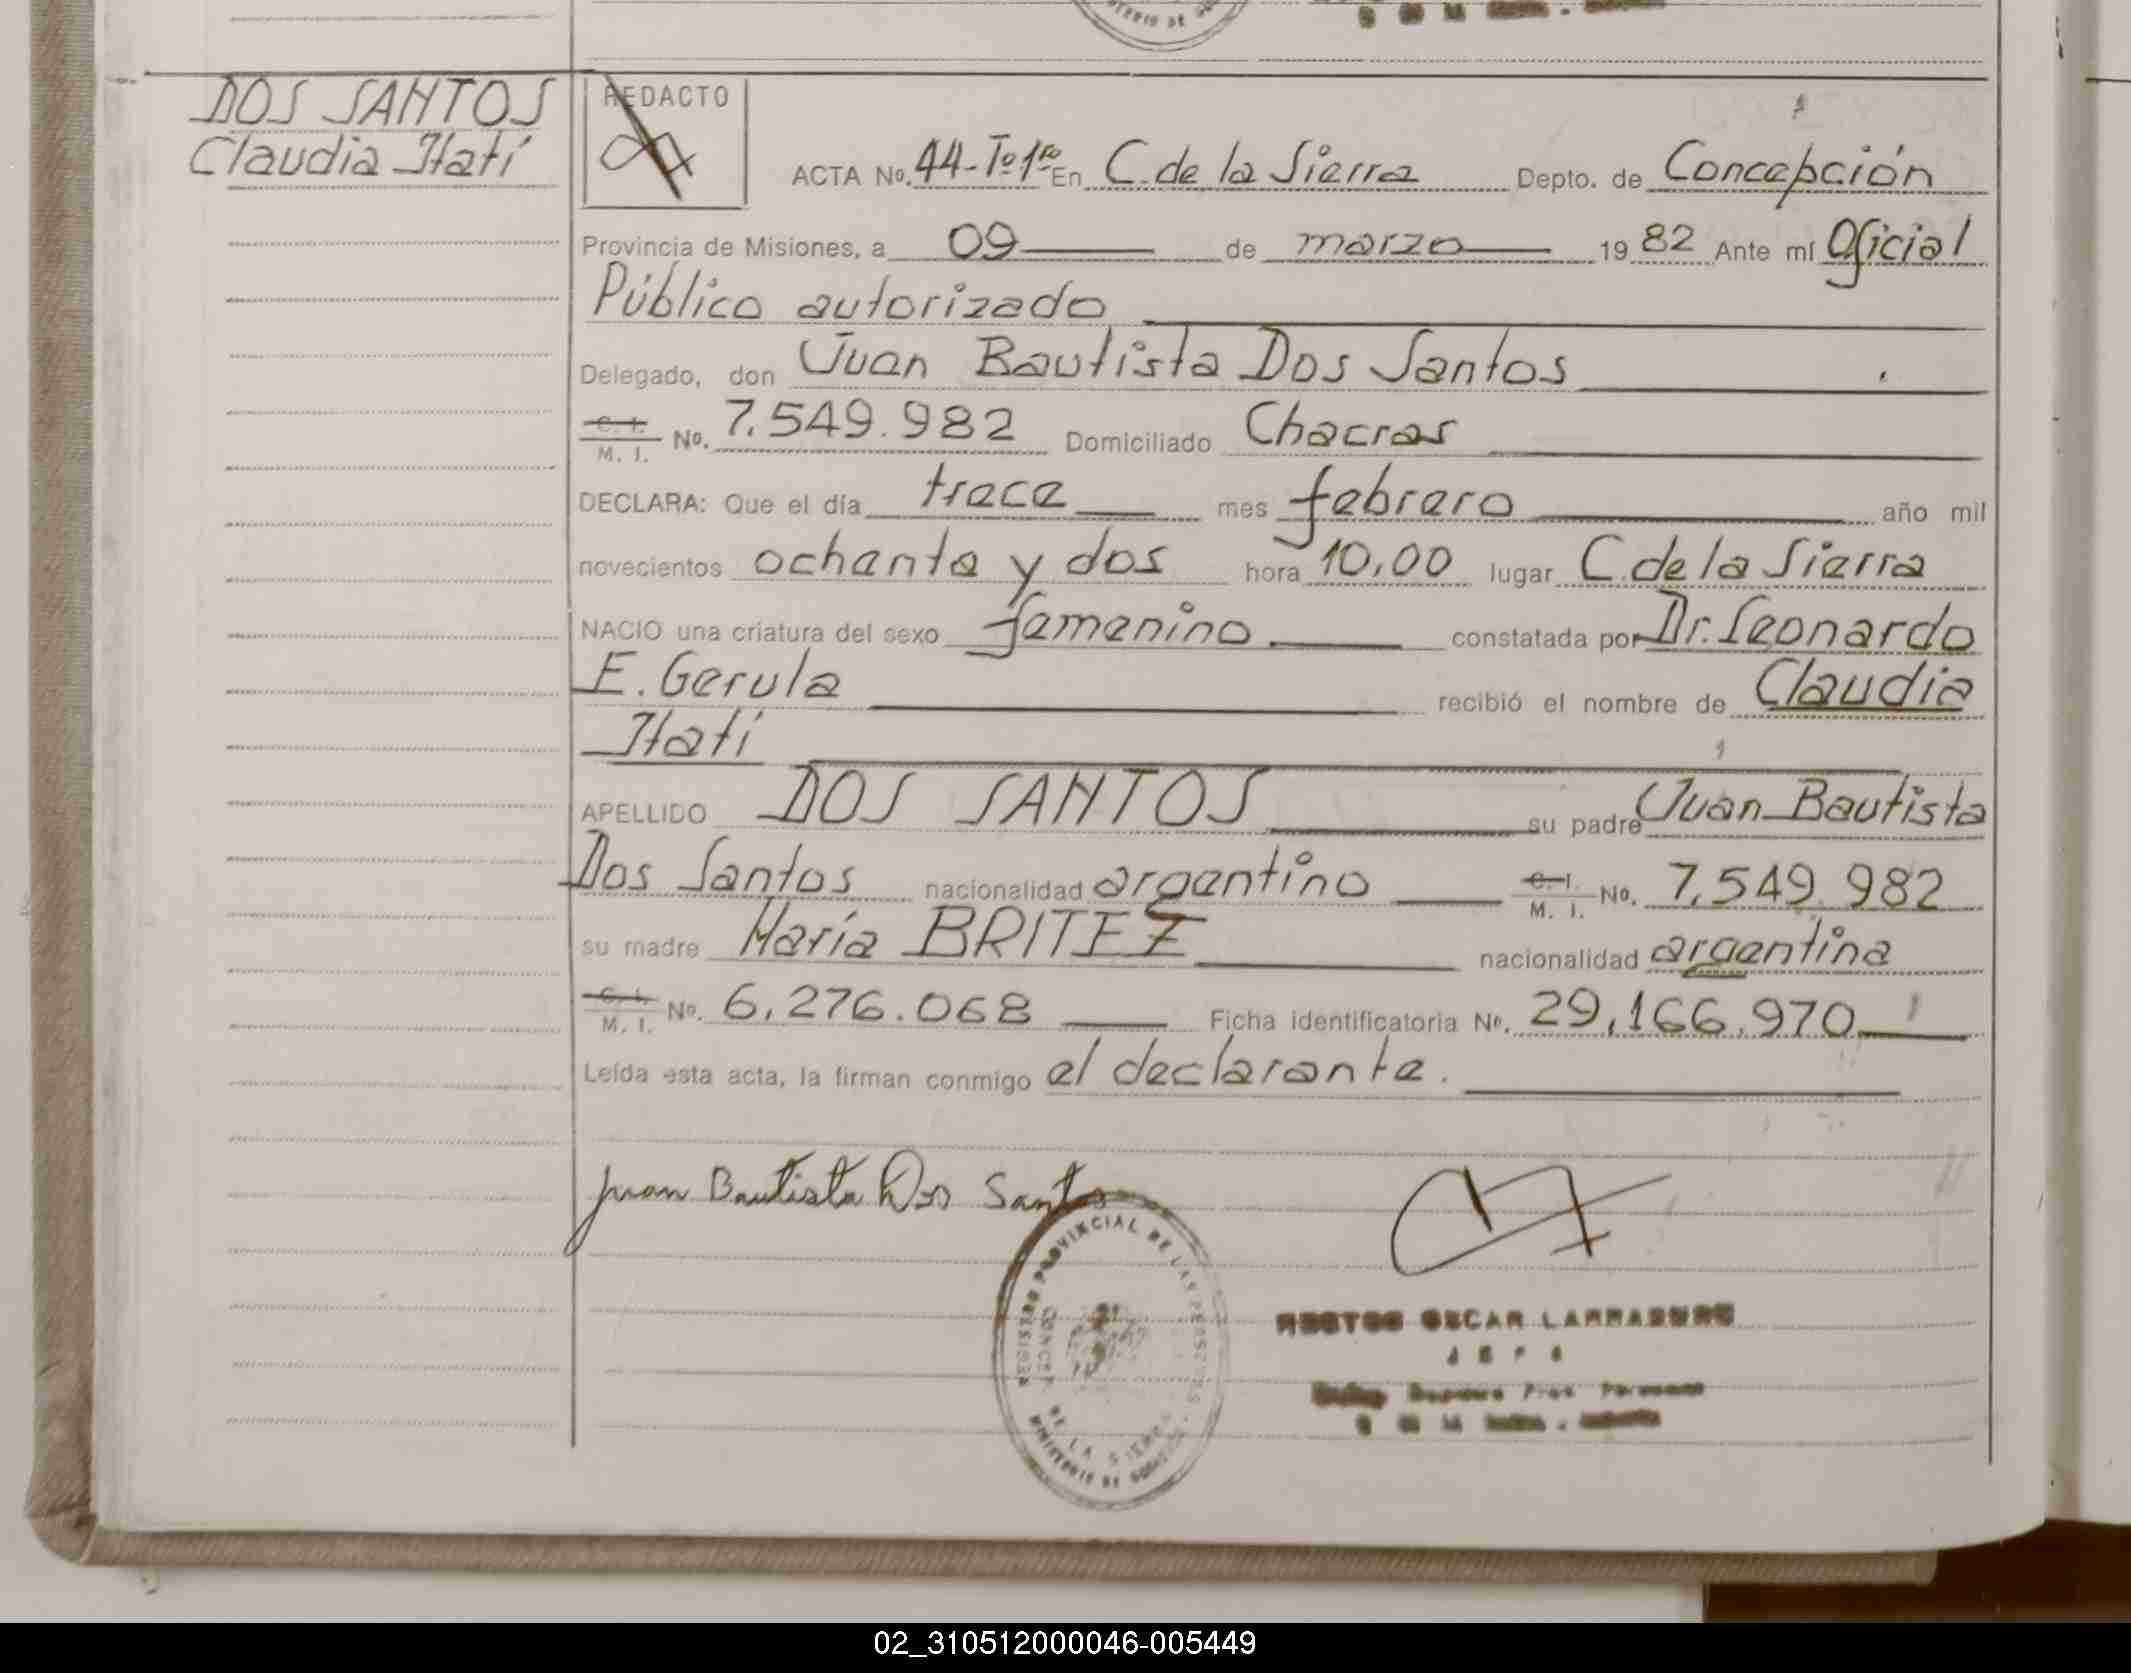 DOS SANTOS
Claudia Itatí
REDACTO
ACTA No. 44-Tº1ro En C. de la Sierra Depto. de Concepción
Provincia de Misiones, a 09 de marzo 19 82 Ante mí Oficial
Público autorizado
Delegado, don Juan Bautista Dos Santos
C. I. / M. I. No. 7.549.982 Domiciliado Chacras
DECLARA: Que el día trece mes febrero año mil
novecientos ochenta y dos hora 10,00 lugar C. de la Sierra
NACIO una criatura del sexo femenino constatada por Dr. Leonardo
E. Gerula recibió el nombre de Claudia
Itatí
APELLIDO DOS SANTOS su padre Juan Bautista
Dos Santos nacionalidad argentino C. I. / M. I. No. 7.549.982
su madre María BRITEZ nacionalidad argentina
C. I. / M. I. No. 6.276.068 Ficha identificatoria No. 29.166.970
Leída esta acta, la firman conmigo el declarante.
Juan Bautista Dos Santos
REGISTRO PROVINCIAL DE LAS PERSONAS
CONCEP. DE LA SIERRA
MINISTERIO DE GOBIERNO
OSCAR
JEFE
02_310512000046-005449